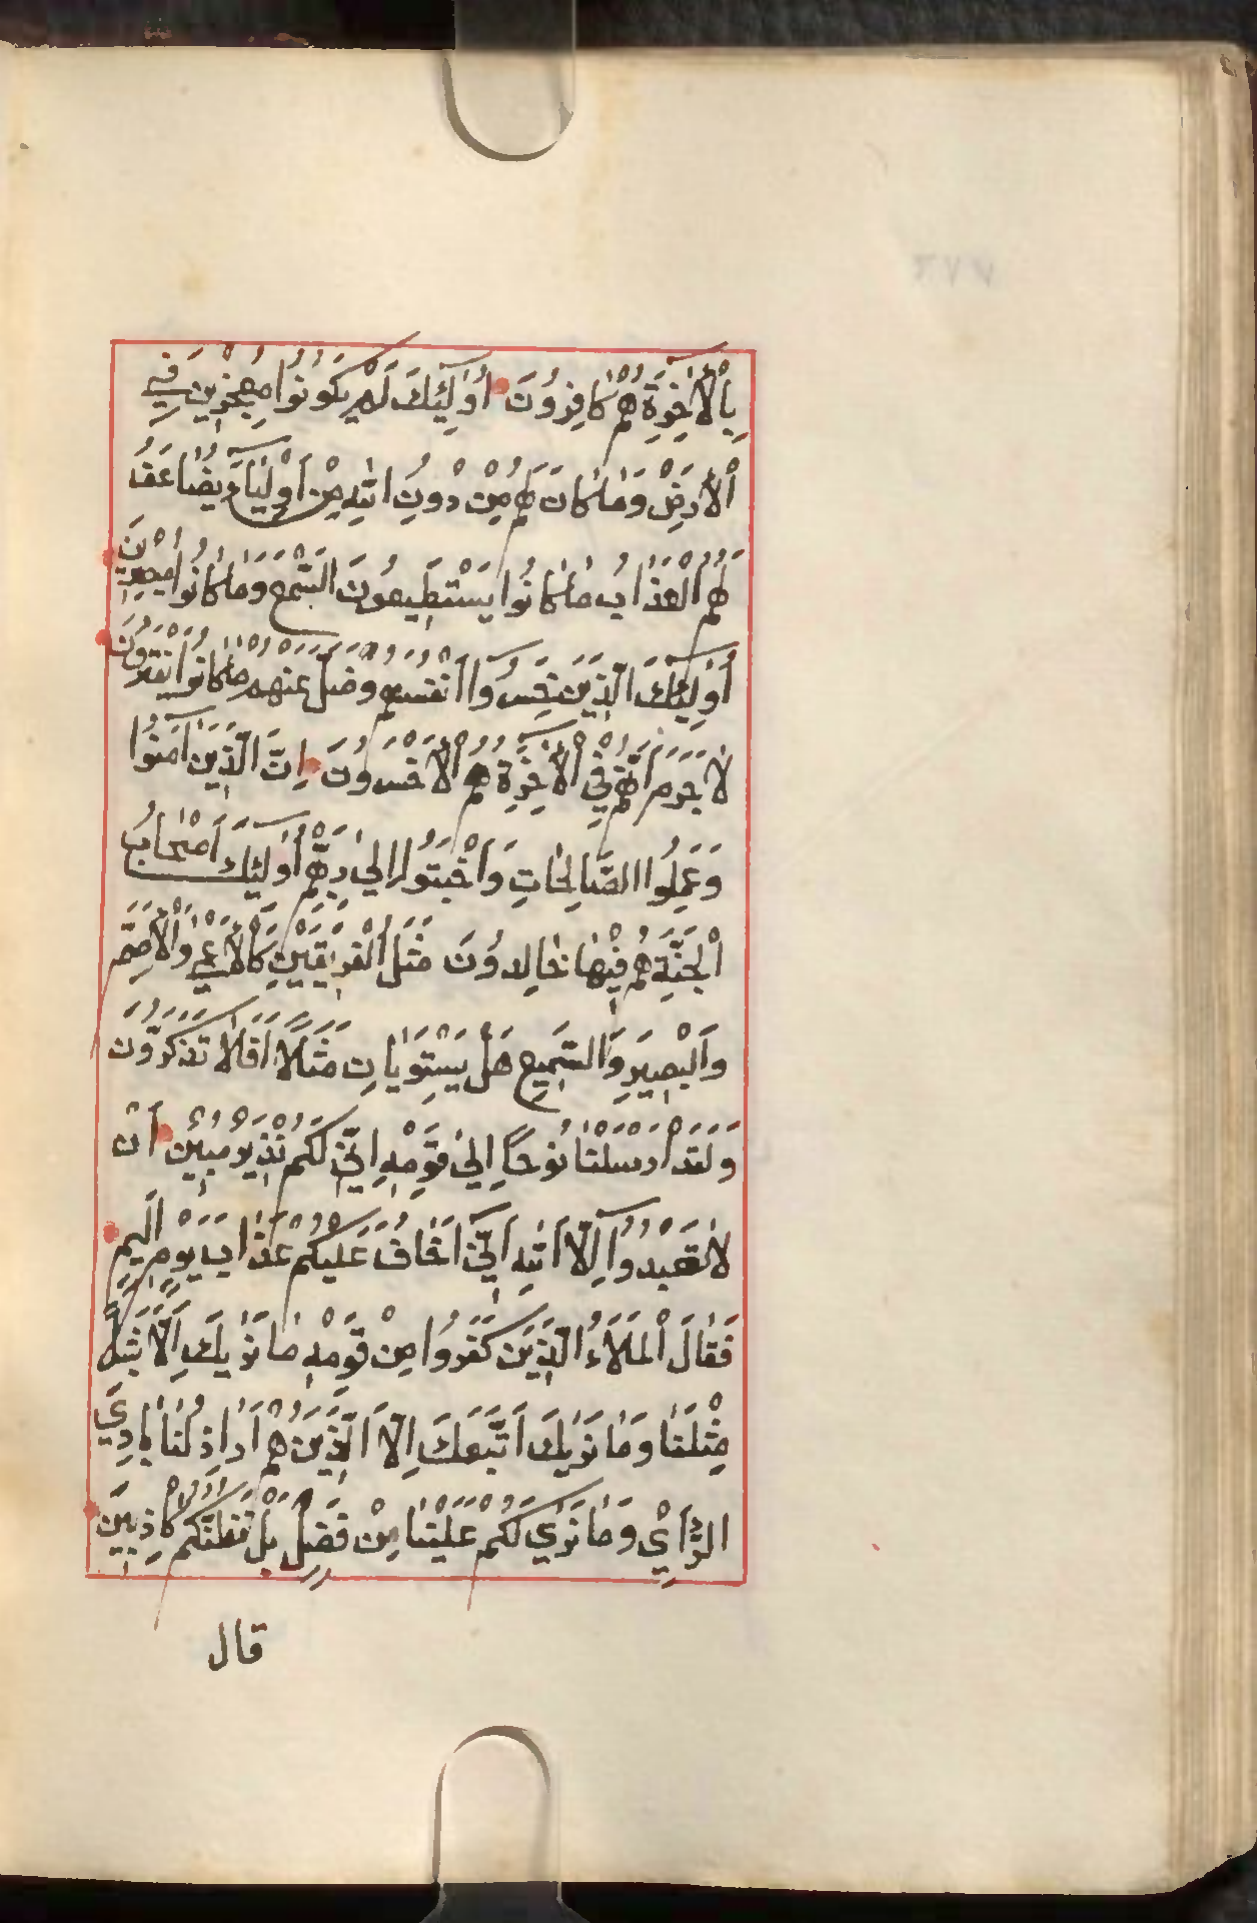 بِالْاٰخِرَةِ هُمْ كَافِرُونَ اُولٰٓئِكَ لَمْ يَكُونُوا مُعْجِزِينَ فِي
الْاَرْضِ وَمَا كَانَ لَهُمْ مِنْ دُونِ اللّٰهِ مِنْ اَوْلِيَآءَ يُضَاعَفُ
لَهُمُ الْعَذَابُ مَا كَانُوا يَسْتَطِيعُونَ السَّمْعَ وَمَا كَانُوا يُبْصِرُونَ
اُولٰٓئِكَ الَّذِينَ خَسِرُوٓا اَنْفُسَهُمْ وَضَلَّ عَنْهُمْ مَا كَانُوا يَفْتَرُونَ
لَا جَرَمَ اَنَّهُمْ فِي الْاٰخِرَةِ هُمُ الْاَخْسَرُونَ اِنَّ الَّذِينَ اٰمَنُوا
وَعَمِلُوا الصَّالِحَاتِ وَاَخْبَتُوا اِلٰى رَبِّهِمْ اُولٰٓئِكَ اَصْحَابُ
الْجَنَّةِ هُمْ فِيهَا خَالِدُونَ مَثَلُ الْفَرِيقَيْنِ كَالْاَعْمٰى وَالْاَصَمِّ
وَالْبَصِيرِ وَالسَّمِيعِ هَلْ يَسْتَوِيَانِ مَثَلًا اَفَلَا تَذَكَّرُونَ
وَلَقَدْ اَرْسَلْنَا نُوحًا اِلٰى قَوْمِهِ اِنِّي لَكُمْ نَذِيرٌ مُبِينٌ اَنْ
لَا تَعْبُدُوٓا اِلَّا اللّٰهَ اِنِّيٓ اَخَافُ عَلَيْكُمْ عَذَابَ يَوْمٍ اَلِيمٍ
فَقَالَ الْمَلَاُ الَّذِينَ كَفَرُوا مِنْ قَوْمِهِ مَا نَرٰيكَ اِلَّا بَشَرًا
مِثْلَنَا وَمَا نَرٰيكَ اتَّبَعَكَ اِلَّا الَّذِينَ هُمْ اَرَاذِلُنَا بَادِيَ
الرَّاْيِ وَمَا نَرٰى لَكُمْ عَلَيْنَا مِنْ فَضْلٍ بَلْ نَظُنُّكُمْ كَاذِبِينَ
قال